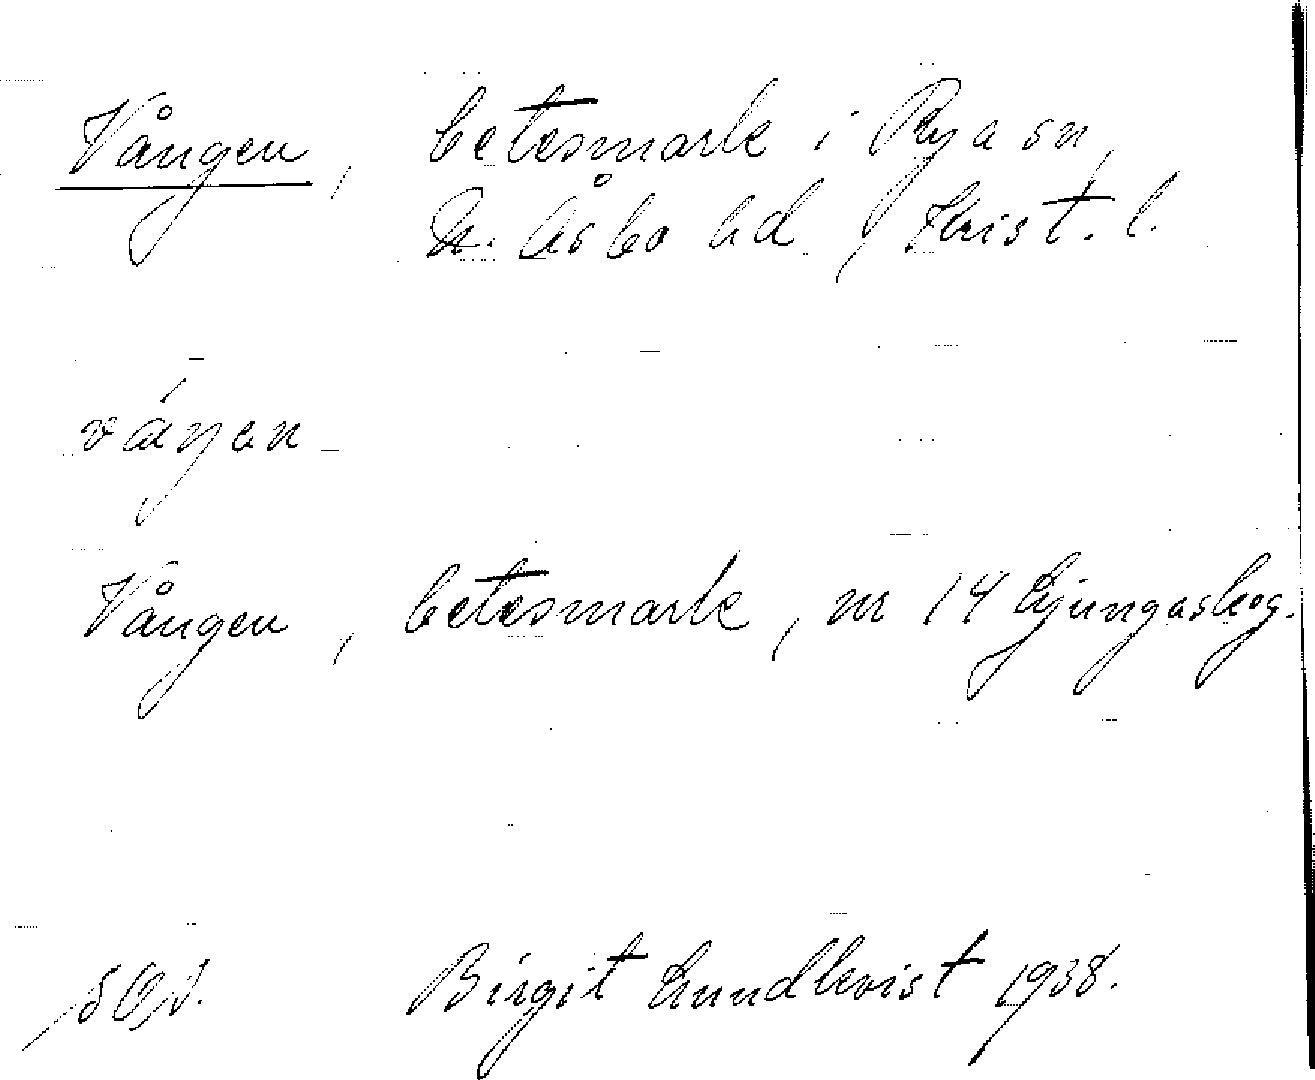 Vången, betesmark i Rya sn,
N. Åsbo hd, Krist. l.
Vången, betesmark, nr 14 Ljungaskog.
Birgit Lundkvist 1938.